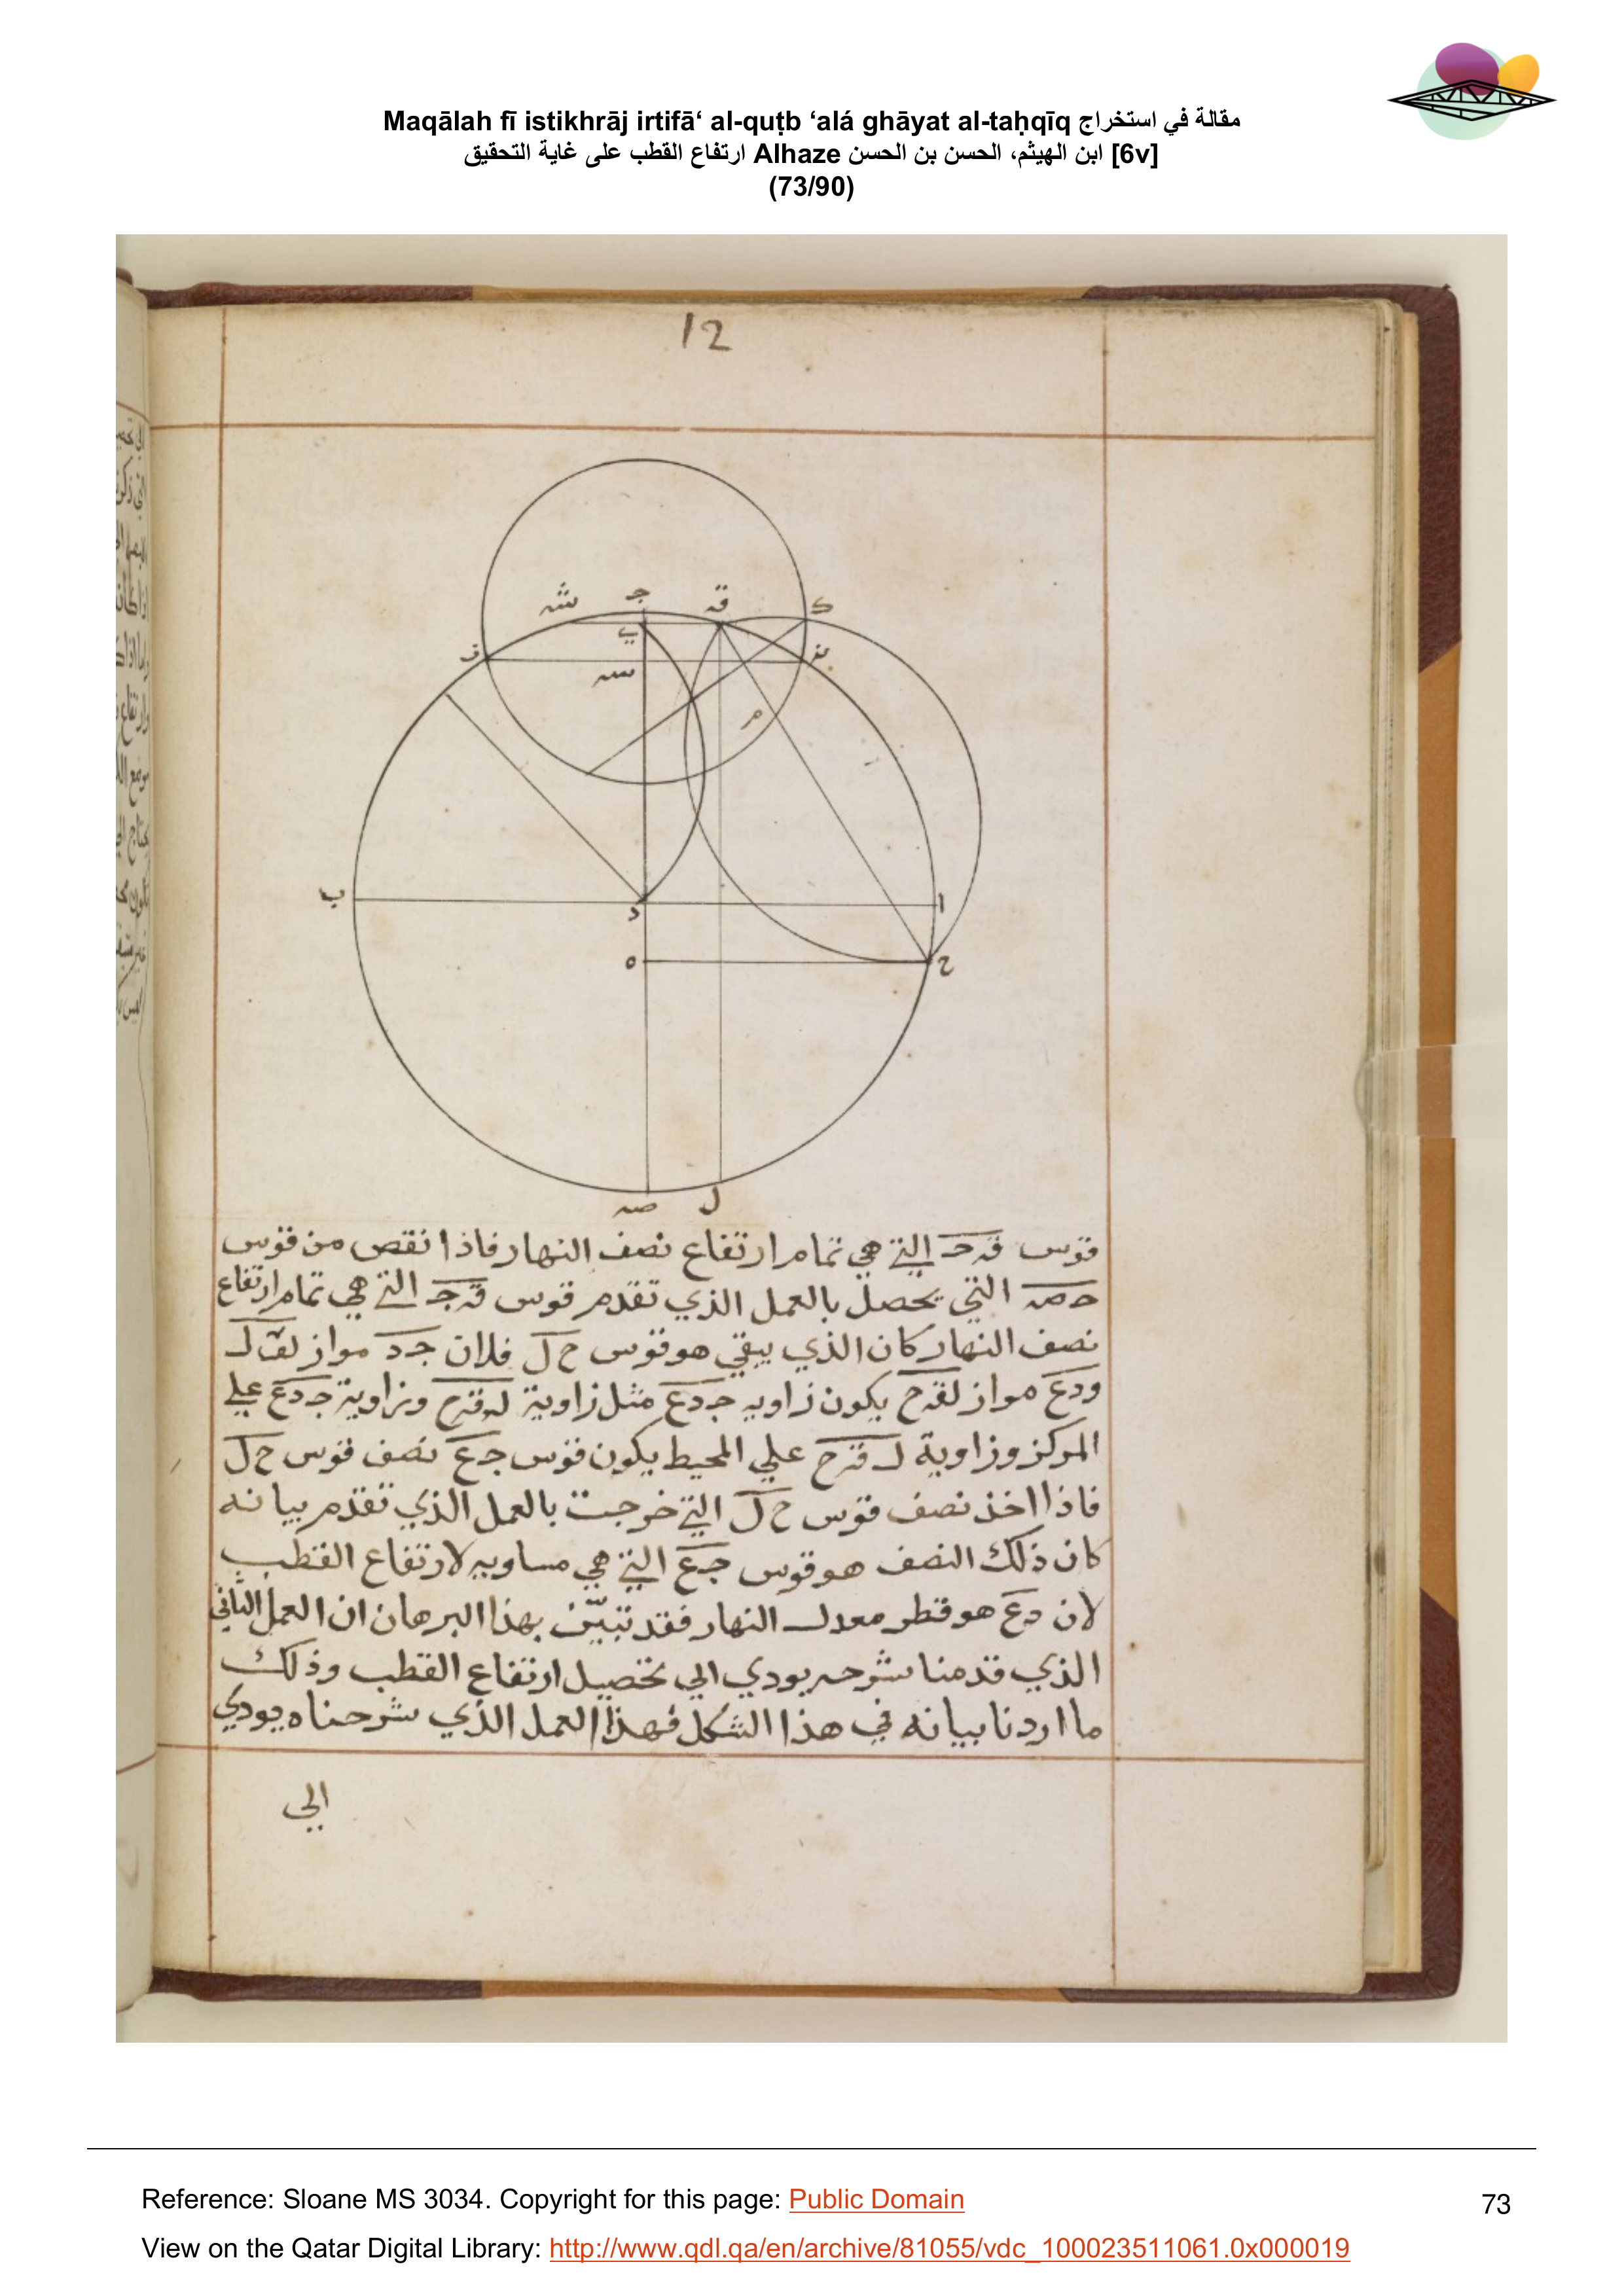 Maqālah fī istikhrāj irtifā‘ al-quṭb ‘alá ghāyat al-taḥqīq مقالة في استخراج
ارتفاع القطب على غاية التحقيق Alhaze ابن الهيثم، الحسن بن الحسن [6v]
(73/90)
12
ج
ق
ك
ش
ي
ف
ن
س
م
ب
د
ا
ه
ح
ل
ص
قوس قـ جـ التي هي تمام ارتفاع نصف النهار فاذا نقص من قوس
حـ صـ التي يحصل بالعمل الذي تقدم قوس قـ جـ التي هي تمام ارتفاع
نصف النهار كان الذي يبقي هو قوس ح ل فلان جـ د مواز لقـ ل
ودع مواز لقـ ح يكون زاويه جـ دع مثل زاوية لـ قـ ح وزاوية جـ دع علي
المركز وزاوية لـ قـ ح علي المحيط يكون قوس جـ ع نصف قوس ح ل
فاذا اخذ نصف قوس ح ل التي خرجت بالعمل الذي تقدم بيانه
كان ذلك النصف هو قوس جـ ع التي هي مساويه لارتفاع القطب
لان دع هو قطر معدل النهار فقد تبيّن بهذا البرهان ان العمل الثاني
الذي قدمنا شرحه يودي الي تحصيل ارتفاع القطب وذلك
ما اردنا بيانه في هذا الشكل فهذا العمل الذي شرحناه يودي
الي
Reference: Sloane MS 3034. Copyright for this page: Public Domain
73
View on the Qatar Digital Library: http://www.qdl.qa/en/archive/81055/vdc_100023511061.0x000019